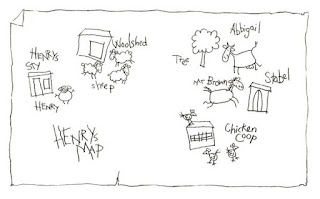 Woolshed
Abbigail
HENRYS
STY
Tree
sheep
Mr Brown
Stabel
HENRY
HENRYs
MAP
Chicken
Coop